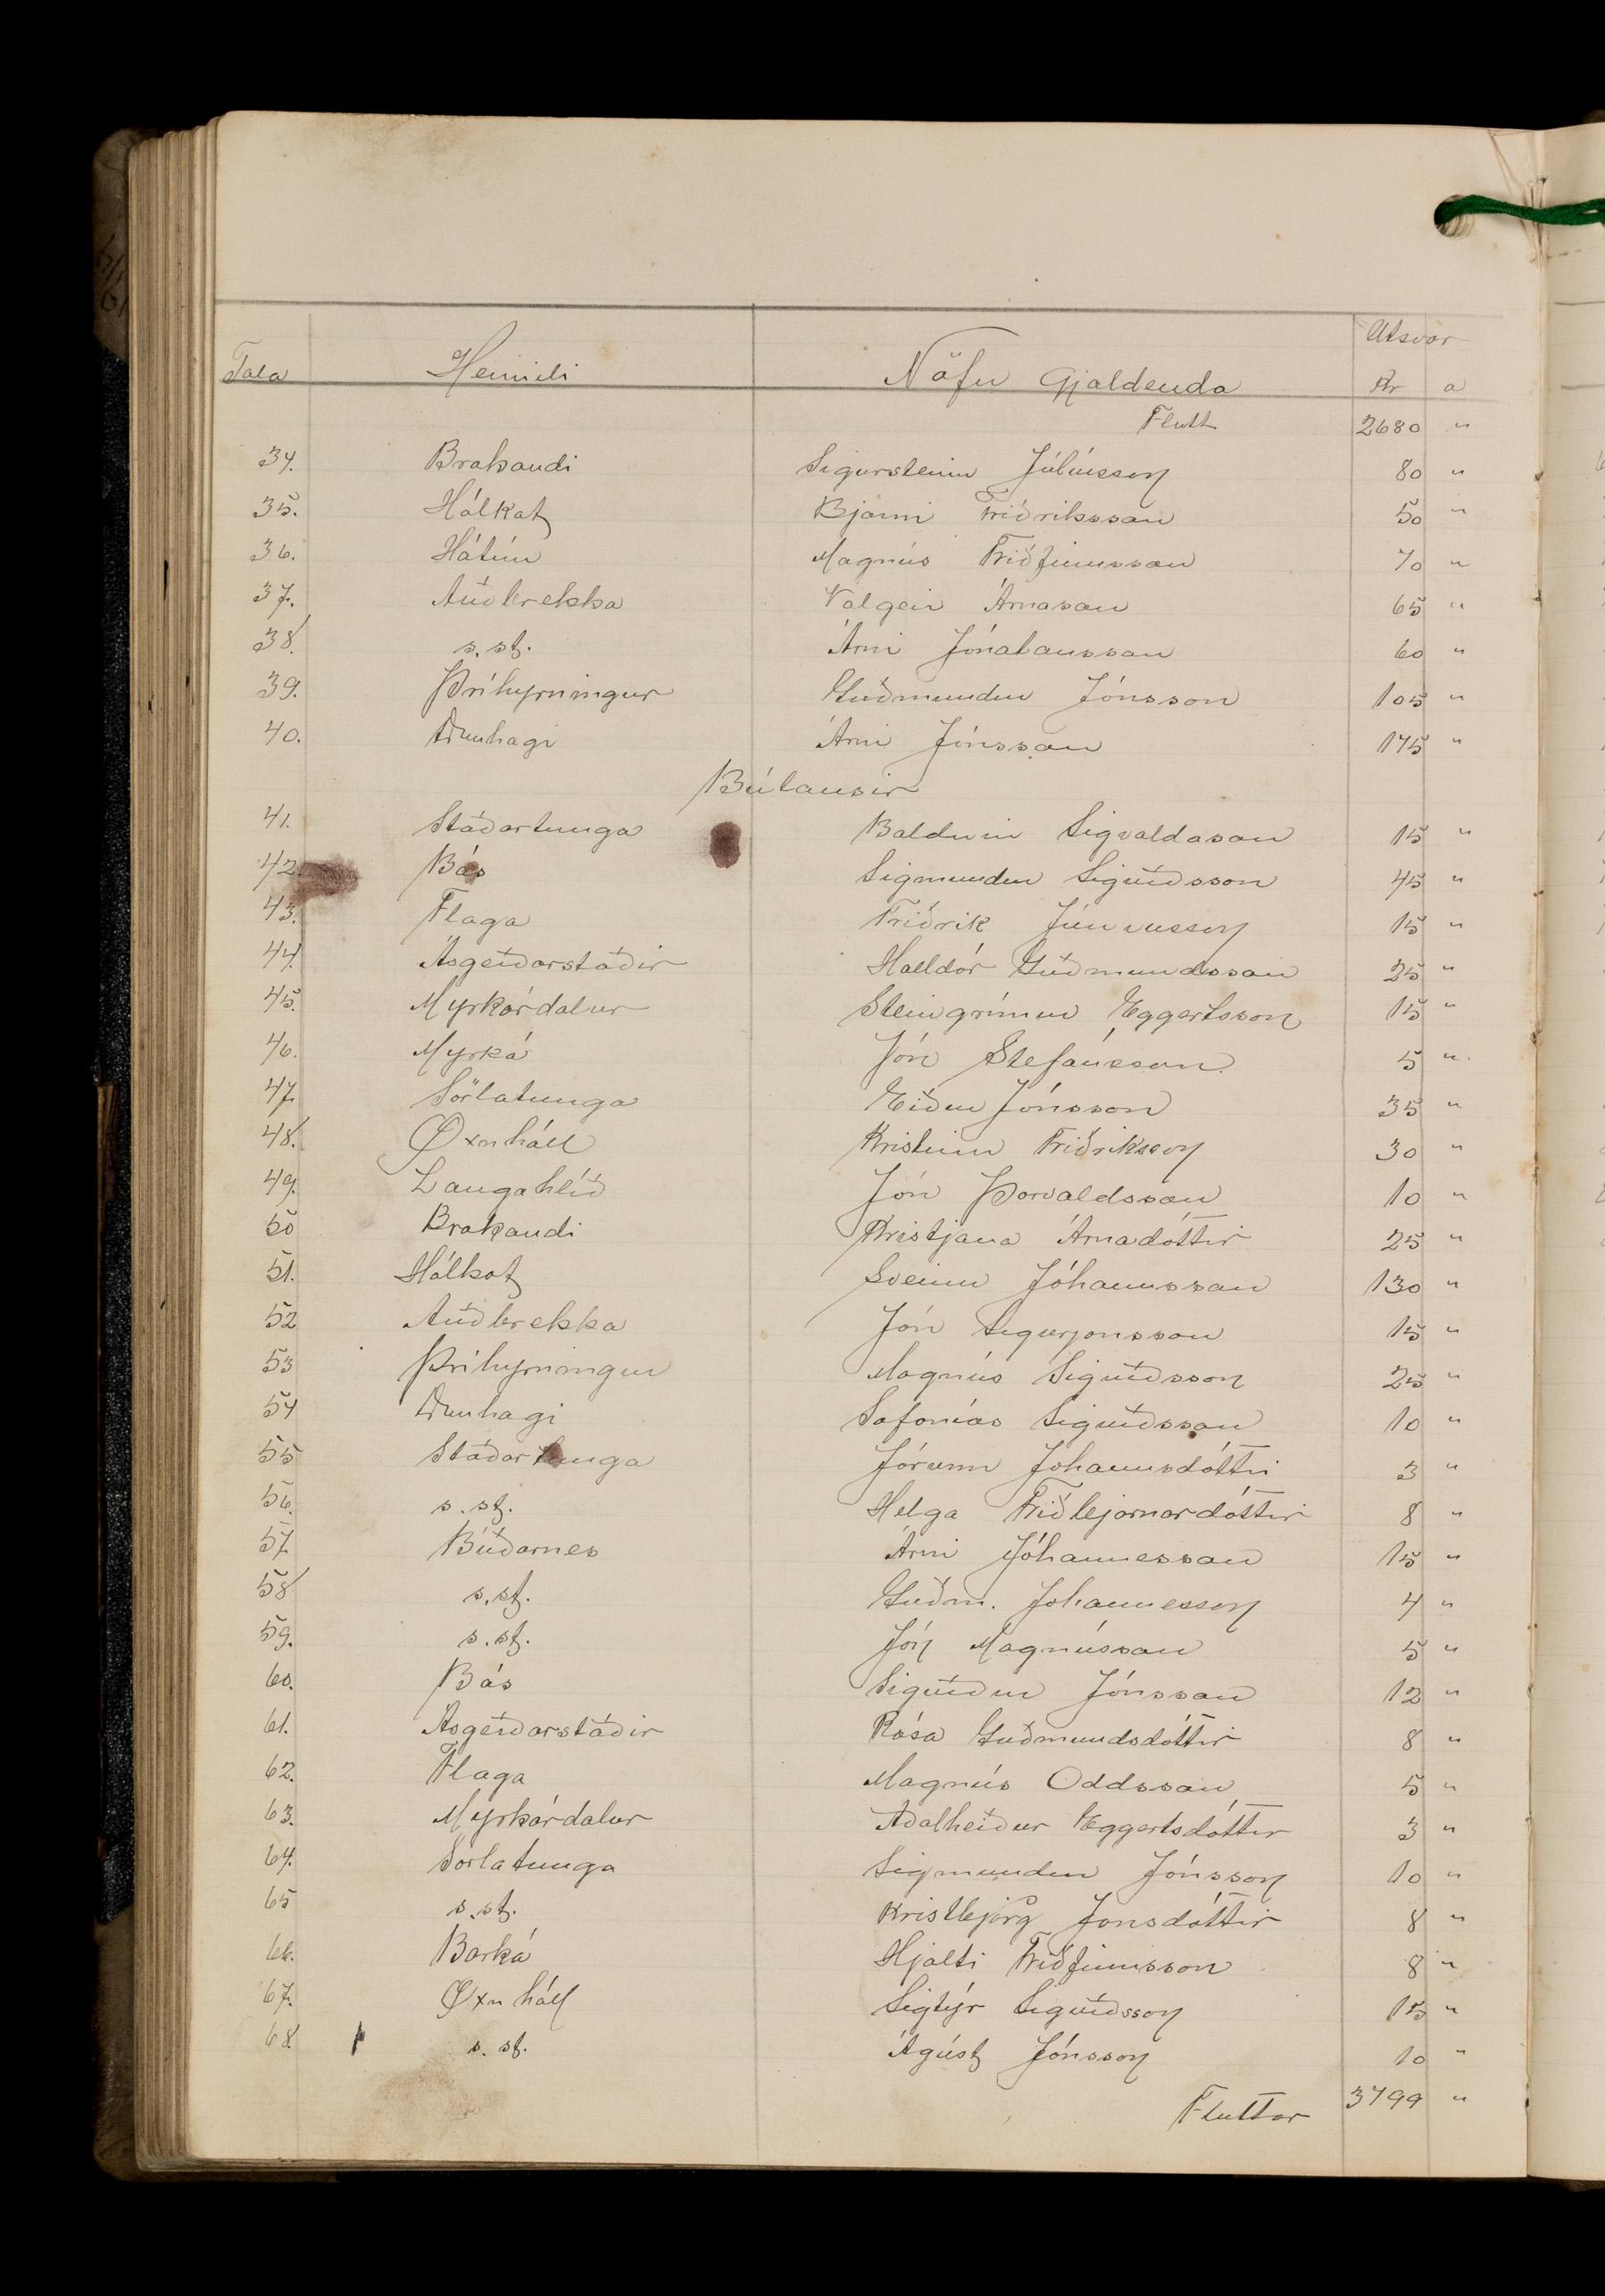 Útsvar
Tala Heimili Nöfn Gjaldenda Kr a
Flutt 2680 "
34. Brakandi Sigursteinn Júlíusson 80 "
35. Hálkot Bjarni Friðriksson 50 "
36. Hátún Magnús Friðfinnsson 70 "
37. Auðbrekka Valgeir Árnason 65 "
38. s. st. Árni Jónatansson 60 "
39. Þríhyrningur Guðmundur Jónsson 105 "
40. Arnhagi Árni Jónsson 175 "
Búlausir
41. Stáðartunga Baldvin Sigvaldason 15 "
42. Bás Sigmundur Sigurðsson 45 "
43. Flaga Friðrik Júníusson 15 "
44. Ásgerðarstáðir Halldór Guðmundsson 25 "
45. Myrkárdalur Steingrímur Eggertsson 15 "
46. Myrká Jón Stefánsson 5 "
47. Sörlatunga Eiður Jónsson 35 "
48. Öxnhóll Kristinn Friðriksson 30 "
49. Langahlíð Jón Þorvaldsson 10 "
50 Brakandi Kristjana Árnadóttir 25 "
51. Hálkot Sveinn Jóhannsson 130 "
52 Auðbrekka Jón Sigurjónsson 15 "
53 Þríhyrningur Magnús Sigurðsson 25 "
54 Arnhagi Sofonías Sigurðsson 10 "
55 Stáðartunga Jórunn Jóhannsdóttir 3 "
56. s. st. Helga Friðbjarnardóttir 8 "
57. Búðarnes Árni Jóhannesson 15 "
58 s. st. Guðm. Johannesson 4 "
59. s. st. Jón Magnússon 5 "
60. Bás Sigurður Jónsson 12 "
61. Ásgerðarstáðir Rósa Guðmundsdóttir 8 "
62. Flaga Magnús Oddsson 5 "
63. Myrkárdalur Aðalheiður Eggertsdóttir 3 "
64. Sorlatunga Sigmundur Jónsson 10 "
65 s. st. Kristbjörg Jonsdóttir 8 "
66. Barká Hjalti Friðfinnsson 8 "
67. Öxnhóll Sigtýr Sigurðsson 15 "
68 s. st. Ágúst Jónsson 10 "
Fluttar 3799 "